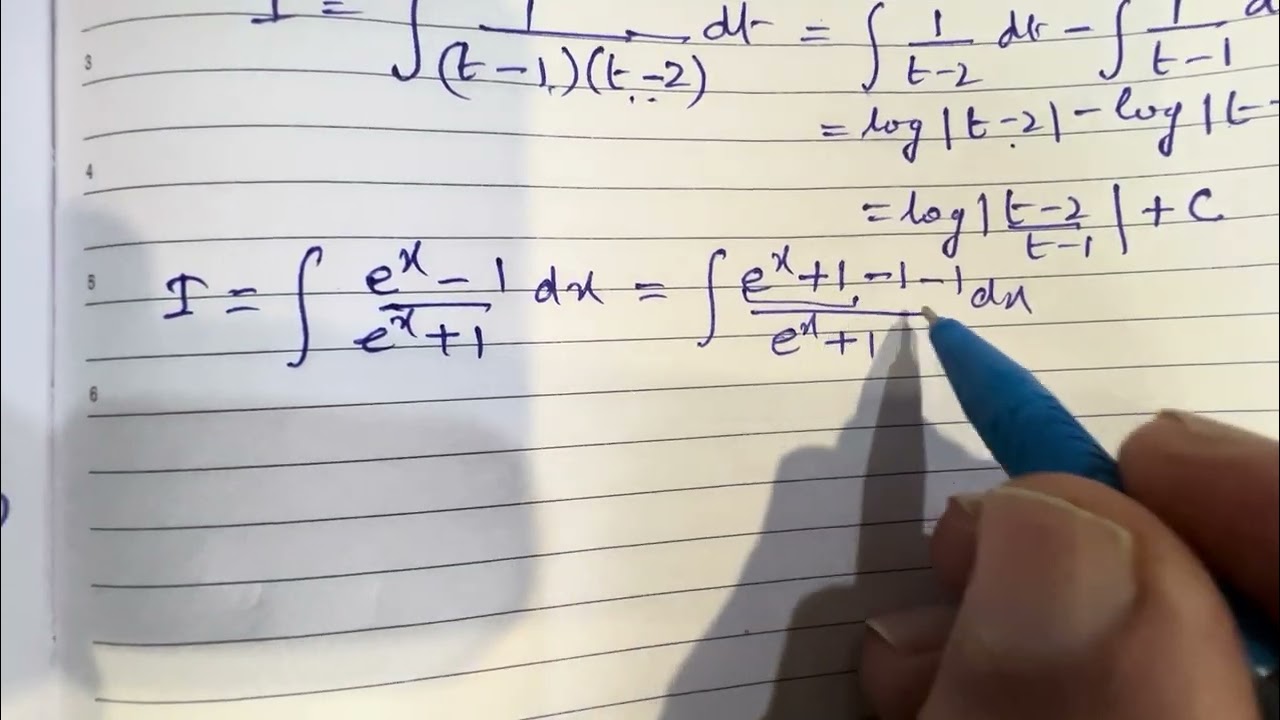 I = ∫ 1/((t-1)(t-2)) dt = ∫ 1/(t-2) dt - ∫ 1/(t-1) d
3
= log |t-2| - log |t-
4
= log |(t-2)/(t-1)| + C
5 I = ∫ (e^x - 1)/(e^x + 1) dx = ∫ (e^x + 1 - 1 - 1)/(e^x + 1) dx
6